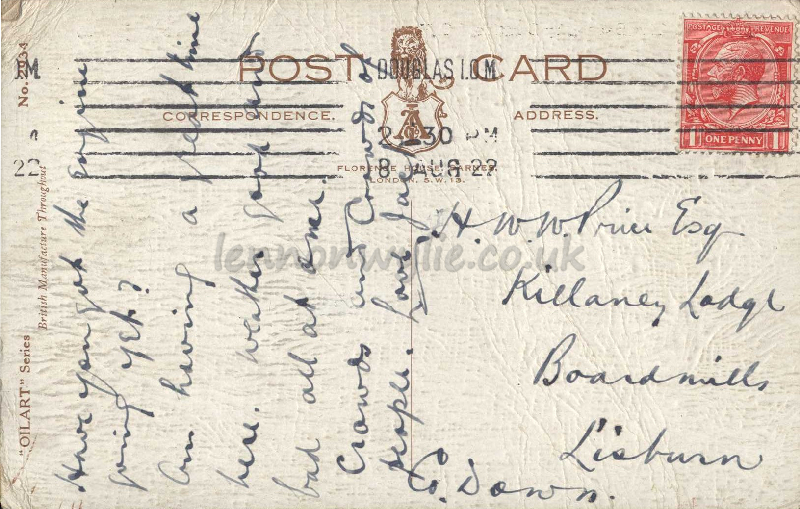 POST CARD
DOUGLAS I.O.M.
2-30 PM
8 AUG 22
CORRESPONDENCE.
ADDRESS.
FLORENCE HOUSE, BARNES,
LONDON, S.W.13.
POSTAGE REVENUE
ONE PENNY
"OILART" Series
No. 2934
British Manufacture Throughout
Have you got the engine
going yet?
Am having a great time
here. weather good and
bad all at time.
Crowds and Crowds of
people. love Jack
H. W. W. Price Esq
Killaney Lodge
Boardmills
Lisburn
Co. Down.
lennonwylie.co.uk